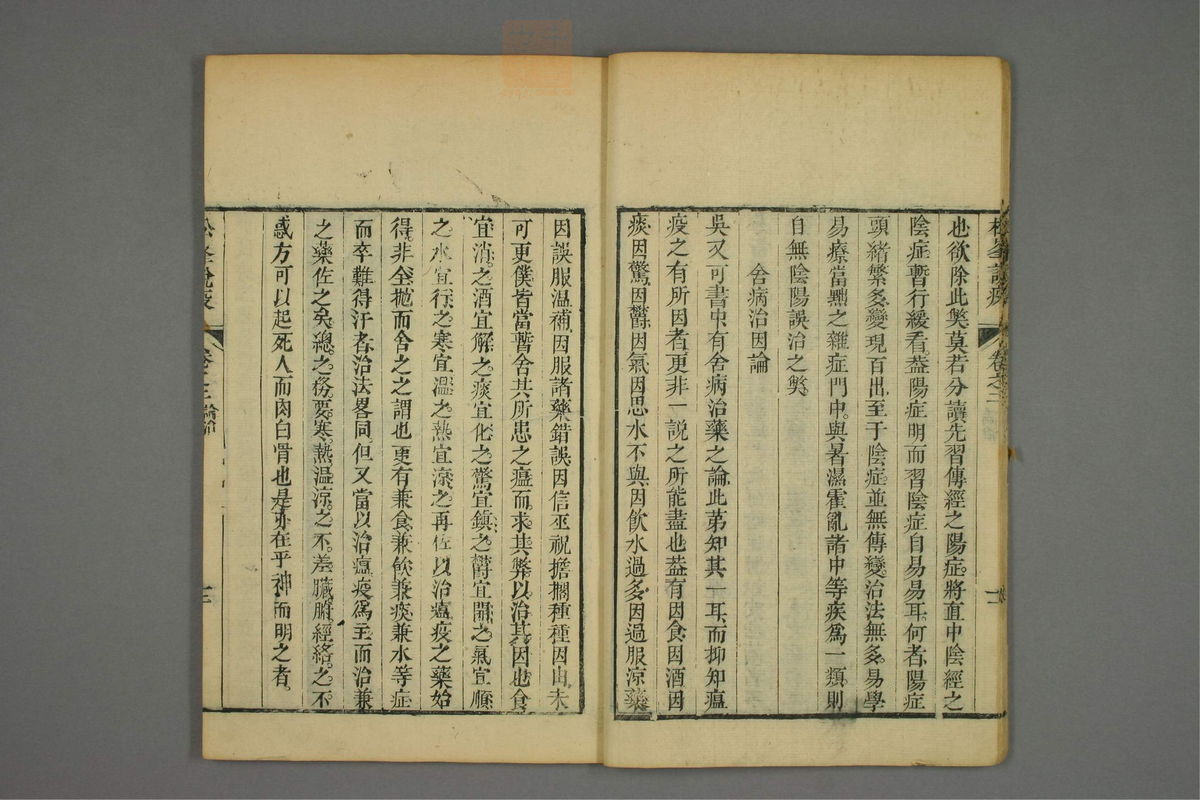 松峯說疫
卷之三
論治
也欲除此獘莫若分讀先習傳經之陽症將直中陰經之
陰症暫行緩看蓋陽症明而習陰症自易易耳何者陽症
頭緒繁多變現百出至于陰症並無傳變治法無多易學
易療當列之雜症門中與暑濕霍亂諸中等疾爲一類則
自無陰陽誤治之獘
舍病治因論
吳又可書中有舍病治藥之論此第知其一耳而抑知瘟
疫之有所因者更非一說之所能盡也葢有因食因酒因
痰因驚因鬱因氣因思水不與因飲水過多因過服涼藥
因誤服温補因服諸藥錯誤因信巫祝擔擱種種因由未
可更僕皆當暫舍其所患之瘟而求其弊以治其因也食
宜消之酒宜解之痰宜化之驚宜鎮之鬱宜開之氣宜順
之水宜行之寒宜温之熱宜涼之再佐以治瘟疫之藥始
得非全抛而舍之之謂也更有兼食兼飲兼痰兼水等症
而卒難得汗者治法畧同但又當以治瘟疫爲主而治兼
之藥佐之矣總之務要寒熱温涼之不差臟腑經絡之不
惑方可以起死人而肉白骨也是亦在乎神而明之者
松峯說疫
卷之三
論治
三